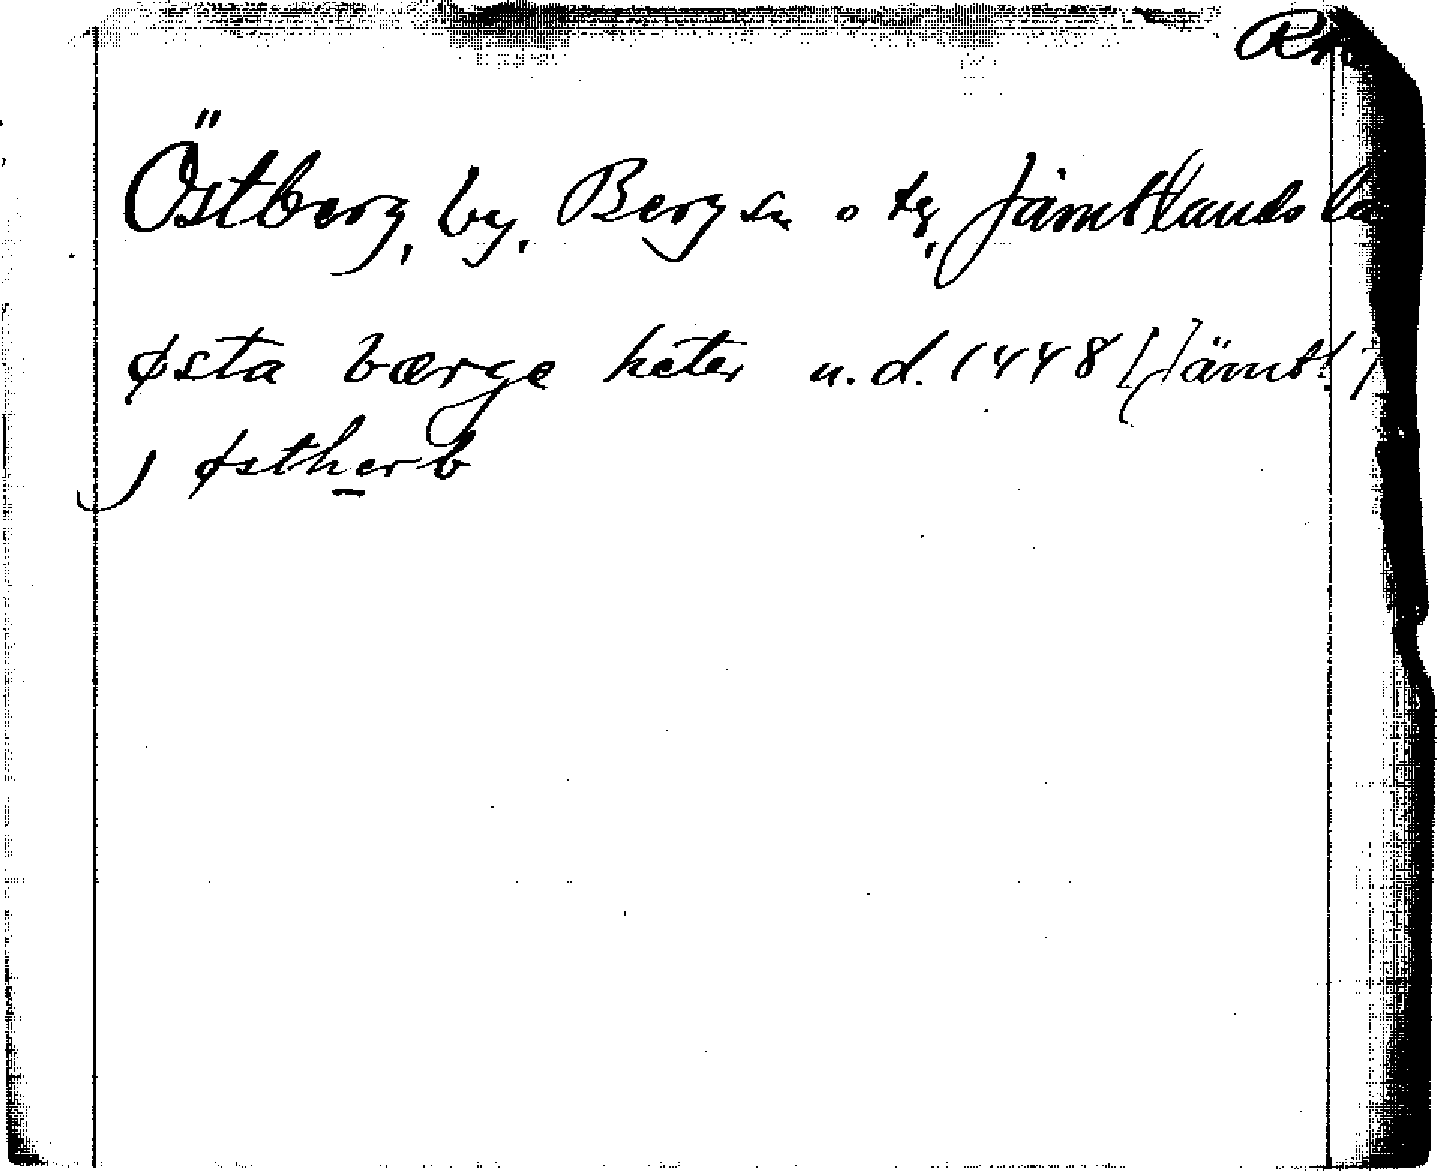 Östberg, by, Bergs sn o tg, Jämtlands lä
østa bærge heter u.d. 1448 (Jämtl.
j østherb